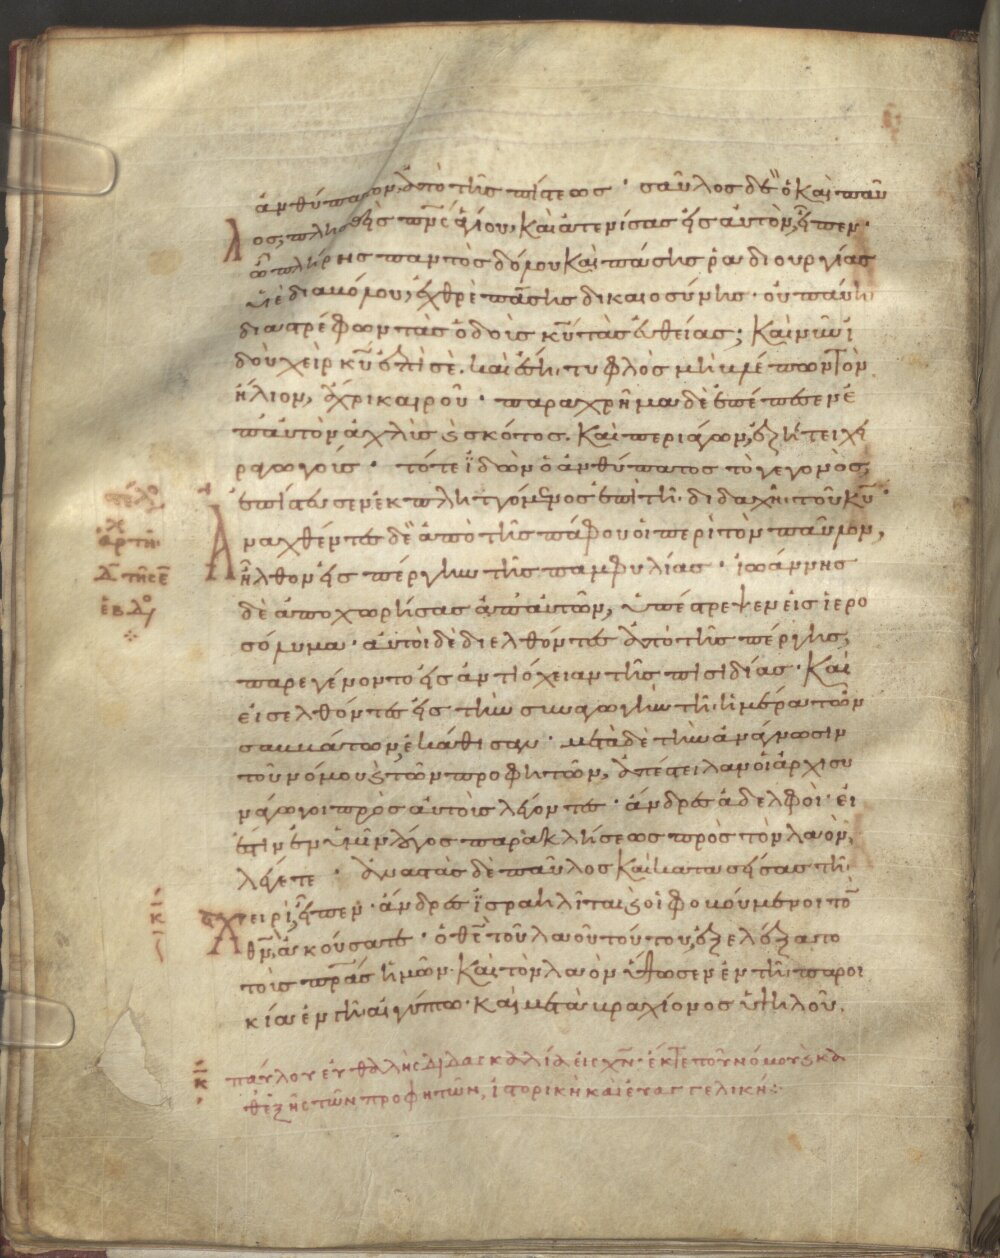 ἀνθύπατον, ἀπὸ τῆς πίστεως · σαῦλος δὲ ὁ καὶ παῦ
λος, πλησθεὶς πν̅ς ἁγίου, καὶ ἀτενίσας εἰς αὐτὸν, εἶπεν ·
ὦ πλήρης παντὸς δόλου καὶ πάσης ῥαδιουργίας
υἱὲ διαβόλου, ἐχθρὲ πάσης δικαιοσύνης · οὐ παύσῃ
διαστρέφων τὰς ὁδοὺς κ̅υ τὰς εὐθείας; καὶ νῦν ἰ
δοὺ χεὶρ κ̅υ ἐπὶ σὲ. καὶ ἔσῃ τυφλὸς μὴ βλέπων τὸν
ἥλιον, ἄχρι καιροῦ · παραχρῆμα δὲ ἐπέπεσεν ἐ
π' αὐτὸν ἀχλὺς ϗ σκότος. καὶ περιάγων, ἐζήτει χει
ραγωγούς · τότε ἰδὼν ὁ ἀνθύπατος τὸ γεγονὸς,
ἐπίστευσεν ἐκπλησσόμενος ἐπὶ τῇ διδαχῇ τοῦ κ̅υ ·
τέλος
Ἀναχθέντες δὲ ἀπὸ τῆς πάφου οἱ περὶ τὸν παῦλον,
ἀρχ τῇ
ἦλθον εἰς πέργην τῆς παμφυλίας · ἰωάννης
δ τῆς ε
δὲ ἀποχωρήσας ἀπ' αὐτῶν, ὑπέστρεψεν εἰς ἱερο
ἑβδο
σόλυμα · αὐτοὶ δὲ διελθόντες ἀπὸ τῆς πέργης,
παρεγένοντο εἰς ἀντιόχειαν τῆς πισιδίας · καὶ
εἰσελθόντες εἰς τὴν συναγωγὴν τῇ ἡμέρα τῶν
σαββάτων, ἐκάθισαν · μετὰ δὲ τὴν ἀνάγνωσιν
τοῦ νόμου ϗ τῶν προφητῶν, ἀπέστειλαν οἱ ἀρχισυ
νάγωγοι πρὸς αὐτοὺς λέγοντες · ἄνδρες ἀδελφοὶ · εἰ
ἔστιν ἐν ὑμῖν λόγος παρακλήσεως πρὸς τὸν λαὸν,
λέγετε · ἀναστὰς δὲ παῦλος καὶ κατασείσας τῇ
κ
χειρὶ, εἶπεν · ἄνδρες ἰσραηλῖται ϗ οἱ φοβούμενοι τὸ
θ̅ν, ἀκούσατε · ὁ θ̅ς τοῦ λαοῦ τούτου, ἐξελέξατο
τοὺς π̅ρας ἡμῶν. καὶ τὸν λαὸν ὕψωσεν ἐν τῇ παροι
κία ἐν γῇ αἰγύπτω · καὶ μετὰ βραχίονος ὑψηλοῦ,
κ παύλου εὐθαλὴς διδασκαλία εἰς χ̅ν · ἔκ τε τοῦ νόμου ϗ κα
θεξῆς τῶν προφητῶν, ἱστορικὴ καὶ εὐαγγελικὴ :